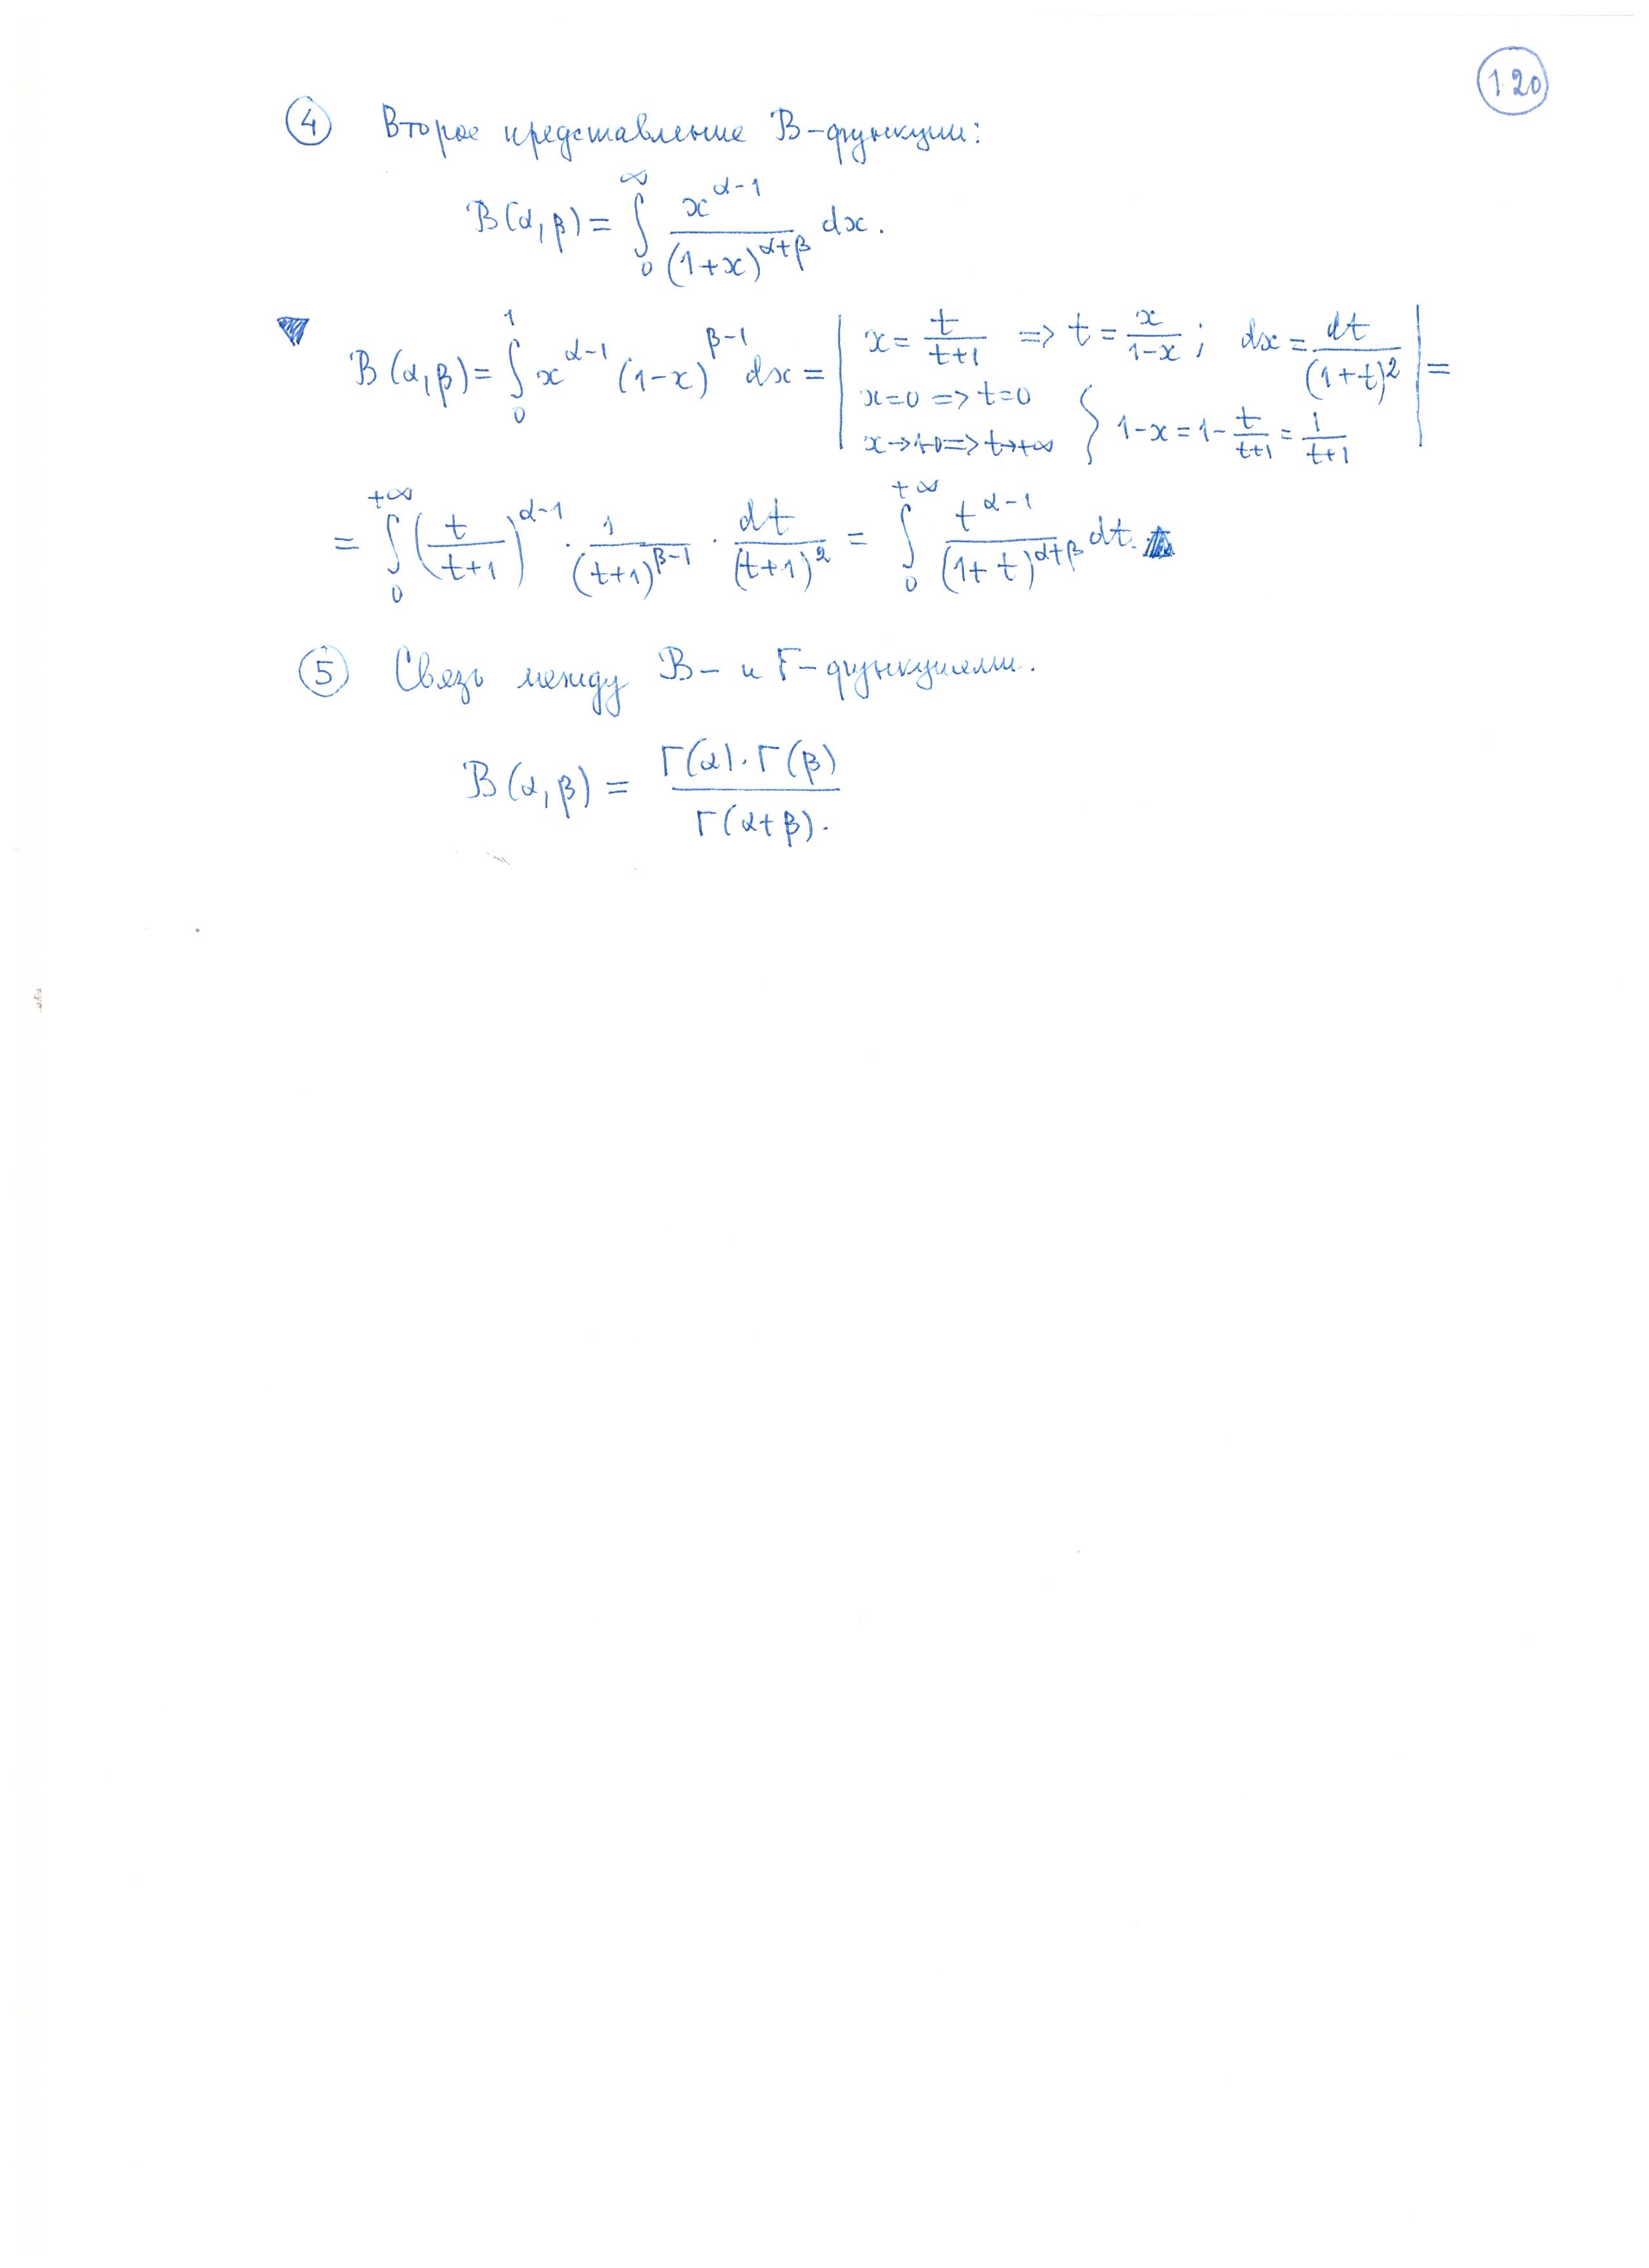 120
④ Второе представление B-функции:
B(α,β) = ∫₀^∞ x^(α-1) / (1+x)^(α+β) dx.
▼ B(α,β) = ∫₀¹ x^(α-1) (1-x)^(β-1) dx = | x = t/(t+1) => t = x/(1-x); dx = dt/(1+t)² | =
x=0 => t=0
x→1-0 => t→+∞ } 1-x = 1 - t/(t+1) = 1/(t+1)
= ∫₀^(+∞) (t/(t+1))^(α-1) · 1/(t+1)^(β-1) · dt/(t+1)² = ∫₀^(+∞) t^(α-1) / (1+t)^(α+β) dt. ▲
⑤ Связь между B- и Г-функциями.
B(α,β) = Г(α)·Г(β) / Г(α+β).